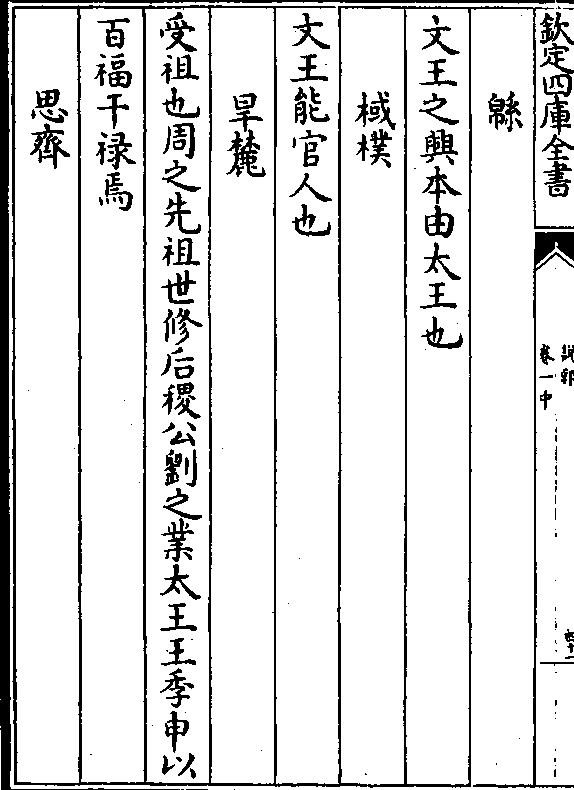 欽定四庫全書
說郛
卷一中
緜
文王之興本由太王也
棫樸
文王能官人也
旱麓
受祖也周之先祖世修后稷公劉之業太王王季申以
百福干祿焉
思齊